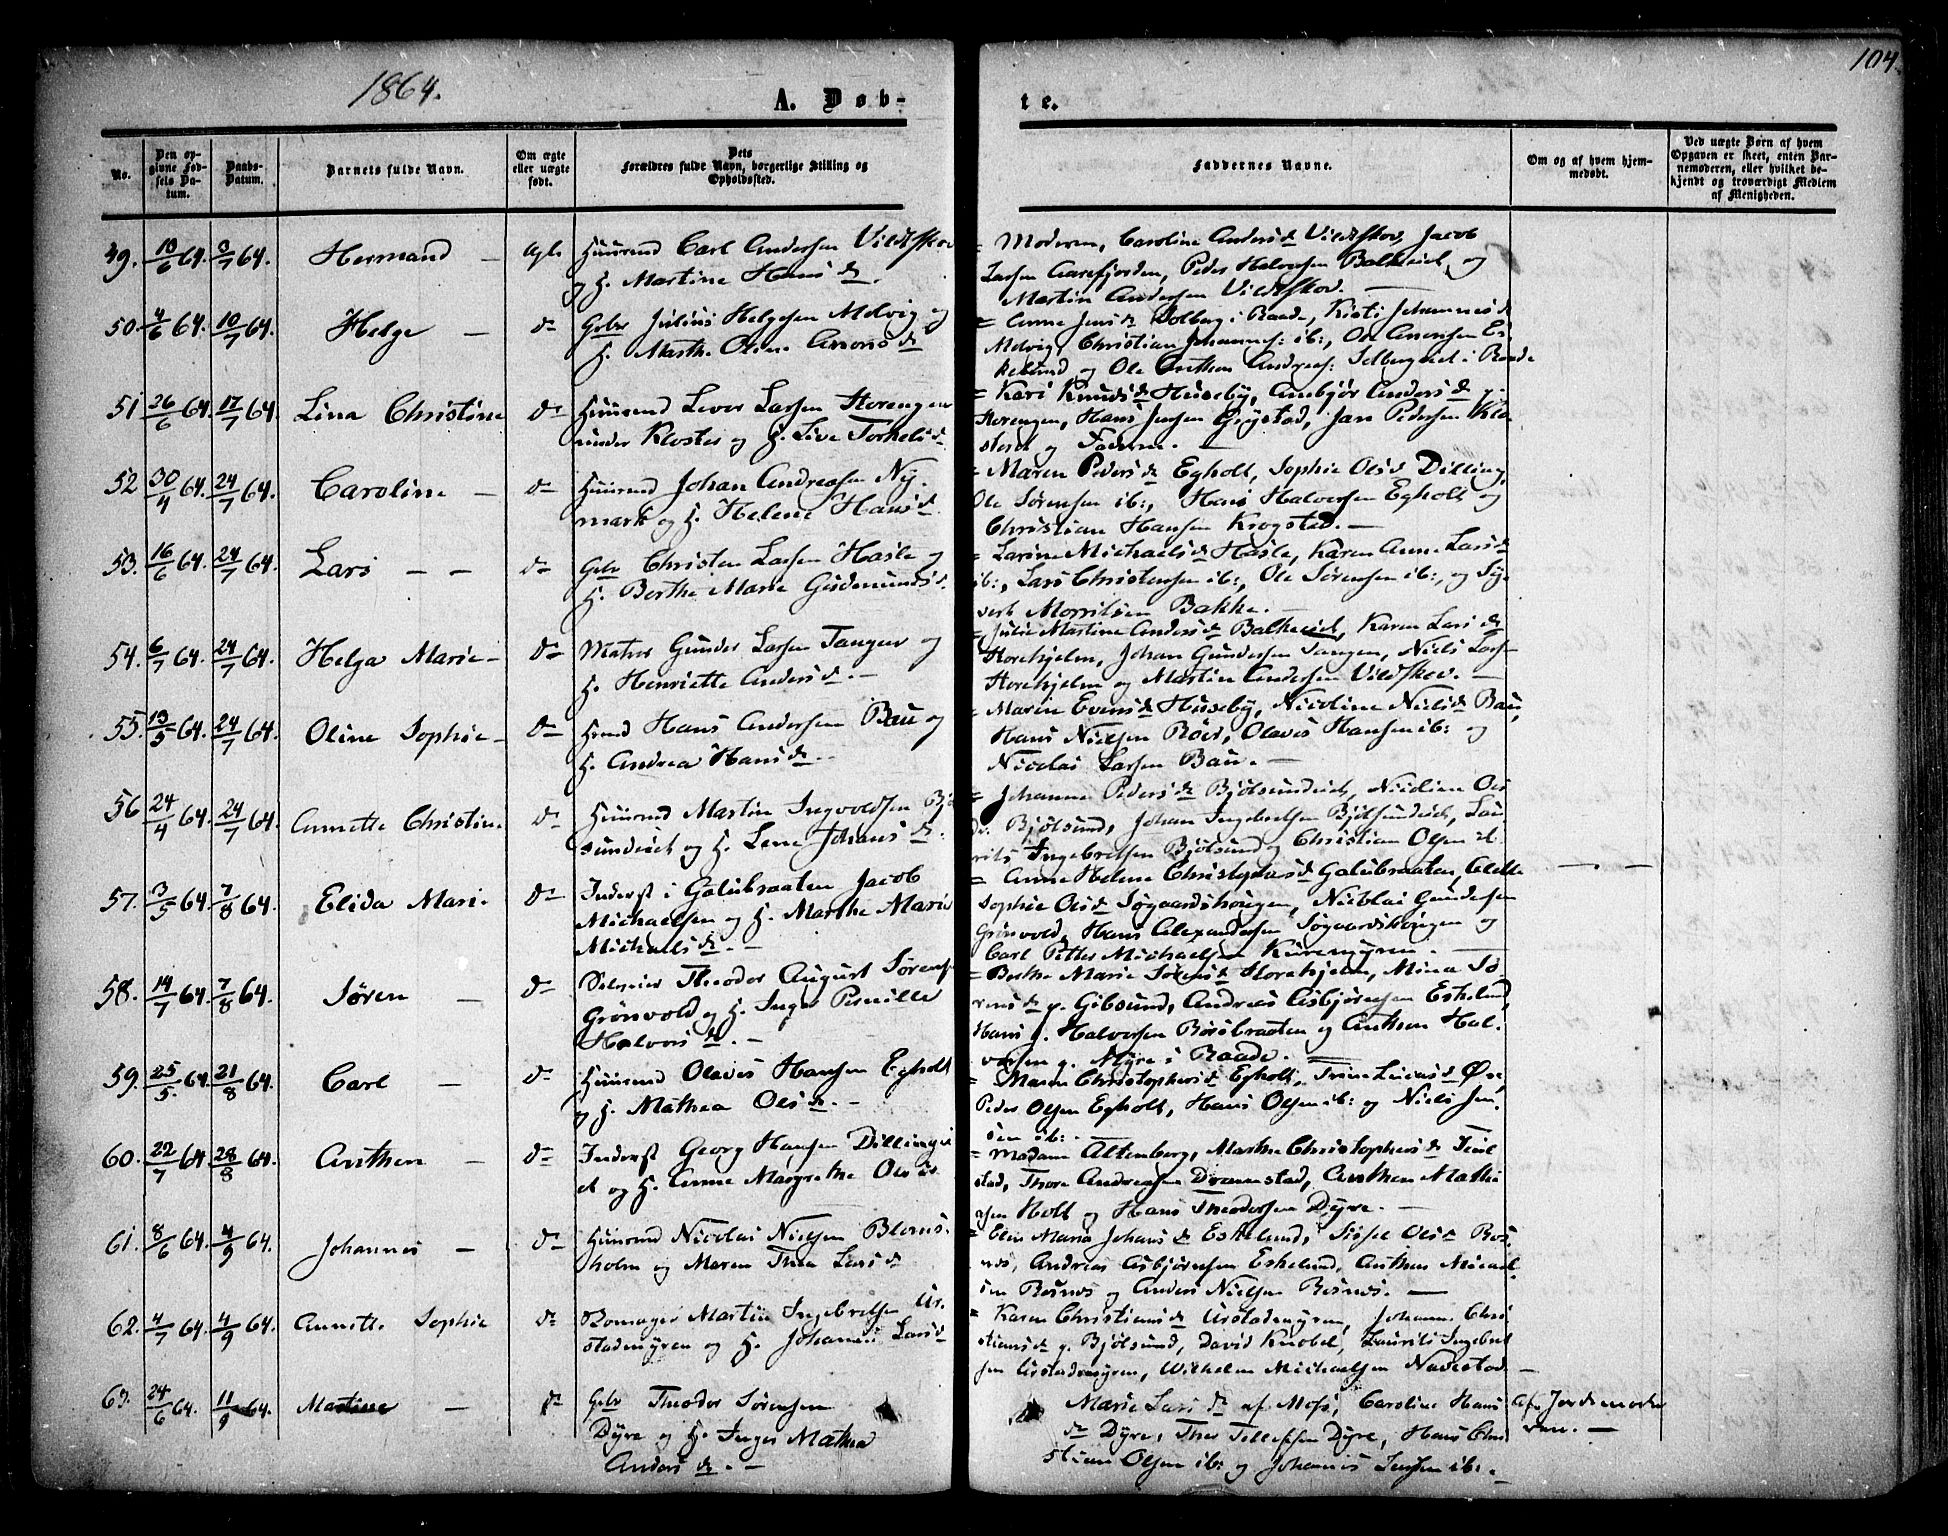 1864.
104.
A. Døb-
te.
No.
Den op-
givne Fød-
sels Da-
tum.
Daabs-
Datum.
Barnets fulde Navn.
Om ægte
eller uægte
født.
Dets
Forældres fulde Navn, borgerlige Stilling og
Opholdssted.
Faddernes Navne.
Om og af hvem hjem-
medøbt.
Ved uægte Børn af hvem
Opgaven er skeet, enten Bar-
nemoderen, eller hvilket be-
kjendt og troværdigt Medlem
af Menigheden.
49. 10/6 64. 3/7 64. Hermand – Carl Andersen Vildtskov
og H. Martine Hansd.
= Moderen, Caroline Andersd Vildtskov, Jacob
Larsen Aarefjorden, Peder Halvorsen Balkeeiet og
Martin Andersen Vildtskov. –
50. 4/6 64. 10/7 64. Helge – do Gbr Julius Helgesen Melvig og
H. Marth. Oline Aronsd
= Anne Jensd Solberg i Raade, Kisti Johannesd
Melvig, Christian Johannes: ib:, Ole Arensen Es-
kelund og Ole Anthon Andreas: Selbergeiet i Raade
51. 26/6 64. 17/7 64. Lina Christine do Huusmd Lever Larsen Storengen
under Kloster og H. Live Torkelsd
= Kari Knudsd Huseby, Anbjør Andersd
Storengen, Hans Jensen Grystad, Jan Pedersen Klo-
steret og Faderen. –
52 30/4 64. 24/7 64. Caroline – do Huusmd Johan Andreasen Ny-
mark og H. Helene Hansd.
= Maren Pedersd Egholt, Sophie Olsd Dilling,
Ole Sørensen ib:, Hans Halvorsen Egholt og
Christian Hansen Krogstad. –
53. 16/6 64. 24/7 64. Lars – – do Gbr Christen Larsen Hasle og
H. Berthe Marie Gudmundsd.
= Larine Michaelsd Hasle, Karen Anne Larsd
ib:, Lars Christensen ib:, Ole Sørensen ib:, og Sy-
vert Morritsen Bakke. –
54. 6/7 64. 24/7 64. Helga Marie – do Matros Gunder Larsen Tangen og
H. Henriette Andersd. –
= Julie Martine Andersd Balkeeiet, Karen Larsd
Storehjelm, Johan Gundersen Tangen, Niels Larsen
Storehjelm og Martin Andersen Vildskov. –
55. 13/5 64. 24/7 64. Oline Sophie – do Hans Andersen Bau og
H. Andrea Hansd. –
= Maren Evensd Huseby, Nicoline Nielsd Bau,
Hans Nielsen Røed, Olaves Hansen ib: og
Nicolai Larsen Bau. –
56 24/4 64. 24/7 64. Annette Christine. do Huusmd Martin Ingvoldsen Bjøl-
sundeiet og H. Lene Johansd.
= Johanne Pedersd Bjølsundeiet, Nicoline Ols-
d. Bjølsund, Johan Ingebretsen Bjølsundeiet, Lau-
rits Ingebretsen Bjølsund og Christian Olsen ib.
57. 3/5 64. 7/8 64. Elida Marie do Inderst i Galubraaten Jacob
Michaelsen og H. Marthe Marie
Michaelsd. –
= Anne Helene Christophersd Galubraaten,
Sophie Olsd Søgaardskongen, Nicolai Gundersen
Grønvold, Hans Alexandersen Søgaardskongen og
Carl Petter Michaelsen Kurremyren. –
58. 14/7 64. 7/8 64. Søren – do Theodor August Sørens.
Grønvold og H. Inger Pernille
Halvorsd. –
= Berthe Marie Sørensd Storehjelm, Mina Sø-
rensd g. Gibsund, Andreas Asbjørnsen Eskelund,
Hans g. Halvorsen Børsbraaten og Anthon Hal-
vorsen g. Myre i Raade.
59. 25/5. 64. 21/8 64. Carl – do Huusmd Olaves Hansen Egholt
og H. Mathea Olsd. –
= Maren Christophersd Egholt, Trine Lucasd Øre,
Peder Olsen Egholt, Hans Olsen ib: og Niels Jen-
sen ib:. –
60. 22/7 64. 28/8 64. Anthon – do Inderst Georg Hansen Dillingei-
et og H. Anne Margrethe Olsd.
= Madam Altenberg, Marthe Christophersd
stad, Thore Andreasen Dramstad, Anthon Mathi-
asen Holt og Hans Theodorsen Dyre. –
61. 8/6 64. 4/9 64. Johannes – do Huusmd Nicolai Nielsen Bloms-
holm og Maren Thea Larsd
= Elin Maria Johansd Eskelund, Sissel Olsd Ros-
nes, Andreas Asbjørnsen Eskelund, Anthon Micael-
sen Rosnes og Anders Nielsen Rosnes. –
62. 4/7 64. 4/9 64. Annette Sophie do Martin Ingebretsen Ur-
stadmyren og H. Johanne Larsd
= Karen Christiansd Urstadmyren, Johanne Chri-
stiansd g. Bjølsund, David Knobel, Laurits Ingebret-
sen Urstadmyren, Wilhelm Michaelsen Navestad. –
63. 24/6 64. 11/9 64. Martine – do Gbr Theodor Sørensen
Dyre og H. Inger Mathea
Andersd. –
Marie Larsd af Moss, Caroline Hans-
d Dyre, Thor Tollefsen Dyre, Hans Chri-
stian Olsen ib: og Johannes Jensen ib:. –
Af Jordemode-
ren. –